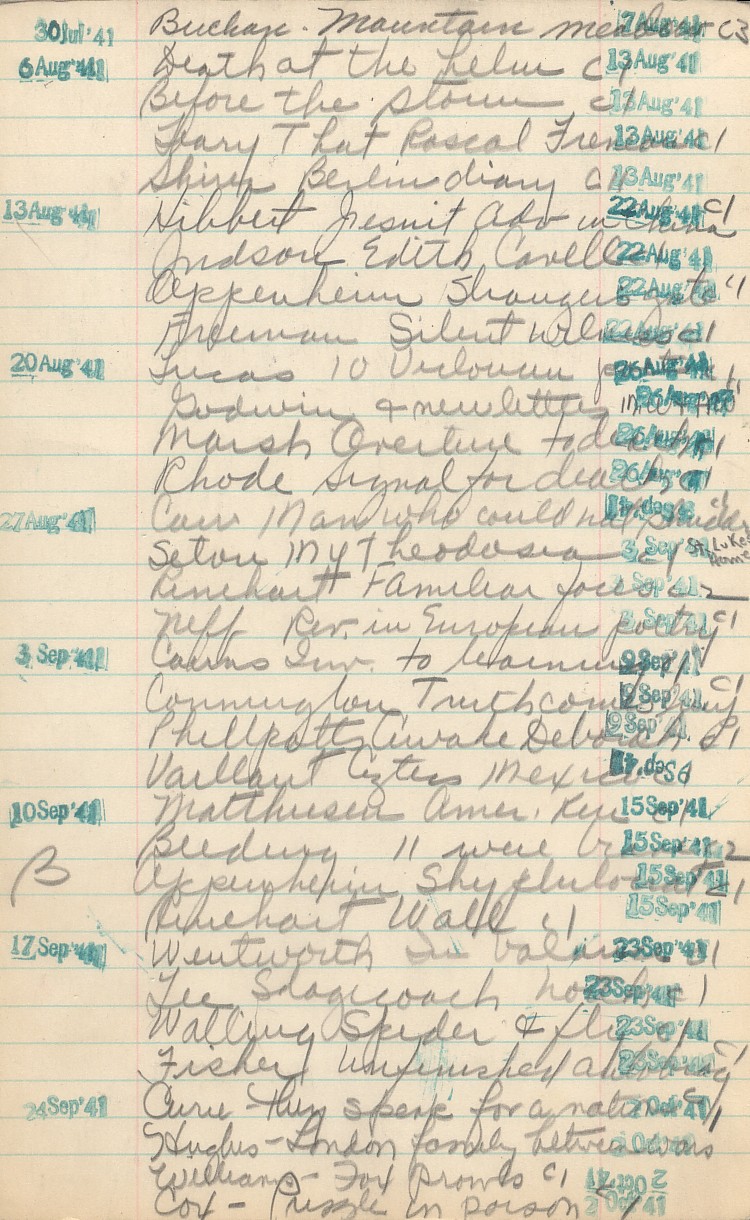 30 Jul '41 Buchan. Mountain meadow 7 Aug '41 c3
6 Aug '41 Death at the helm c1 13 Aug '41
Before the storm c1 13 Aug '41
Leary That Rascal French c1 13 Aug '41
Shirer Berlin diary c11 13 Aug '41
13 Aug '41 Hibbert Jesuit Adv in China 22 Aug '41 c1
Judson Edith Cavell c1 22 Aug '41
Oppenheim Strangers gate 22 Aug '41 c1
Freeman Silent witness c1 22 Aug '41
20 Aug '41 Lucas 10 Victorian poets c1 26 Aug '41
Godwin & newletters 26 Aug '41
Marsh Overture to death c1 26 Aug '41
Rhode Signal for death c1 26 Aug '41
27 Aug '41 Carr Man who could not shudder c1
Seton My Theodosia c1 3 Sep '41 St Lukes Home
Rinehart Familiar faces c2 3 Sep '41
Neff Rev. in European poetry c1 3 Sep '41
3 Sep '41 Cairns Inv. to learning c1 9 Sep '41
Connington Truth comes limping c1 9 Sep '41
Phillpotts Awake Deborah c1 9 Sep '41
Vaillant Aztecs Mexico
10 Sep '41 Matthiesen Amer. Ren c1 15 Sep '41
Beeding 11 were brave c2 15 Sep '41
B Oppenheim Shy plutocrat c1 15 Sep '41
Rinehart Wall c1 15 Sep '41
17 Sep '41 Wentworth In balance c1 23 Sep '41
Lee Stagecoach north c1 23 Sep '41
Walling Spider & fly c1 23 Sep '41
Fisher Unfinished autobiog c1 23 Sep '41
24 Sep '41 Curie - They speak for a nation c1 2 Oct '41
Hughes - London family between wars 2 Oct '41
Williams - Fox Prowls c1 2 Oct '41
Cox - Puzzle in poison c1 2 Oct '41